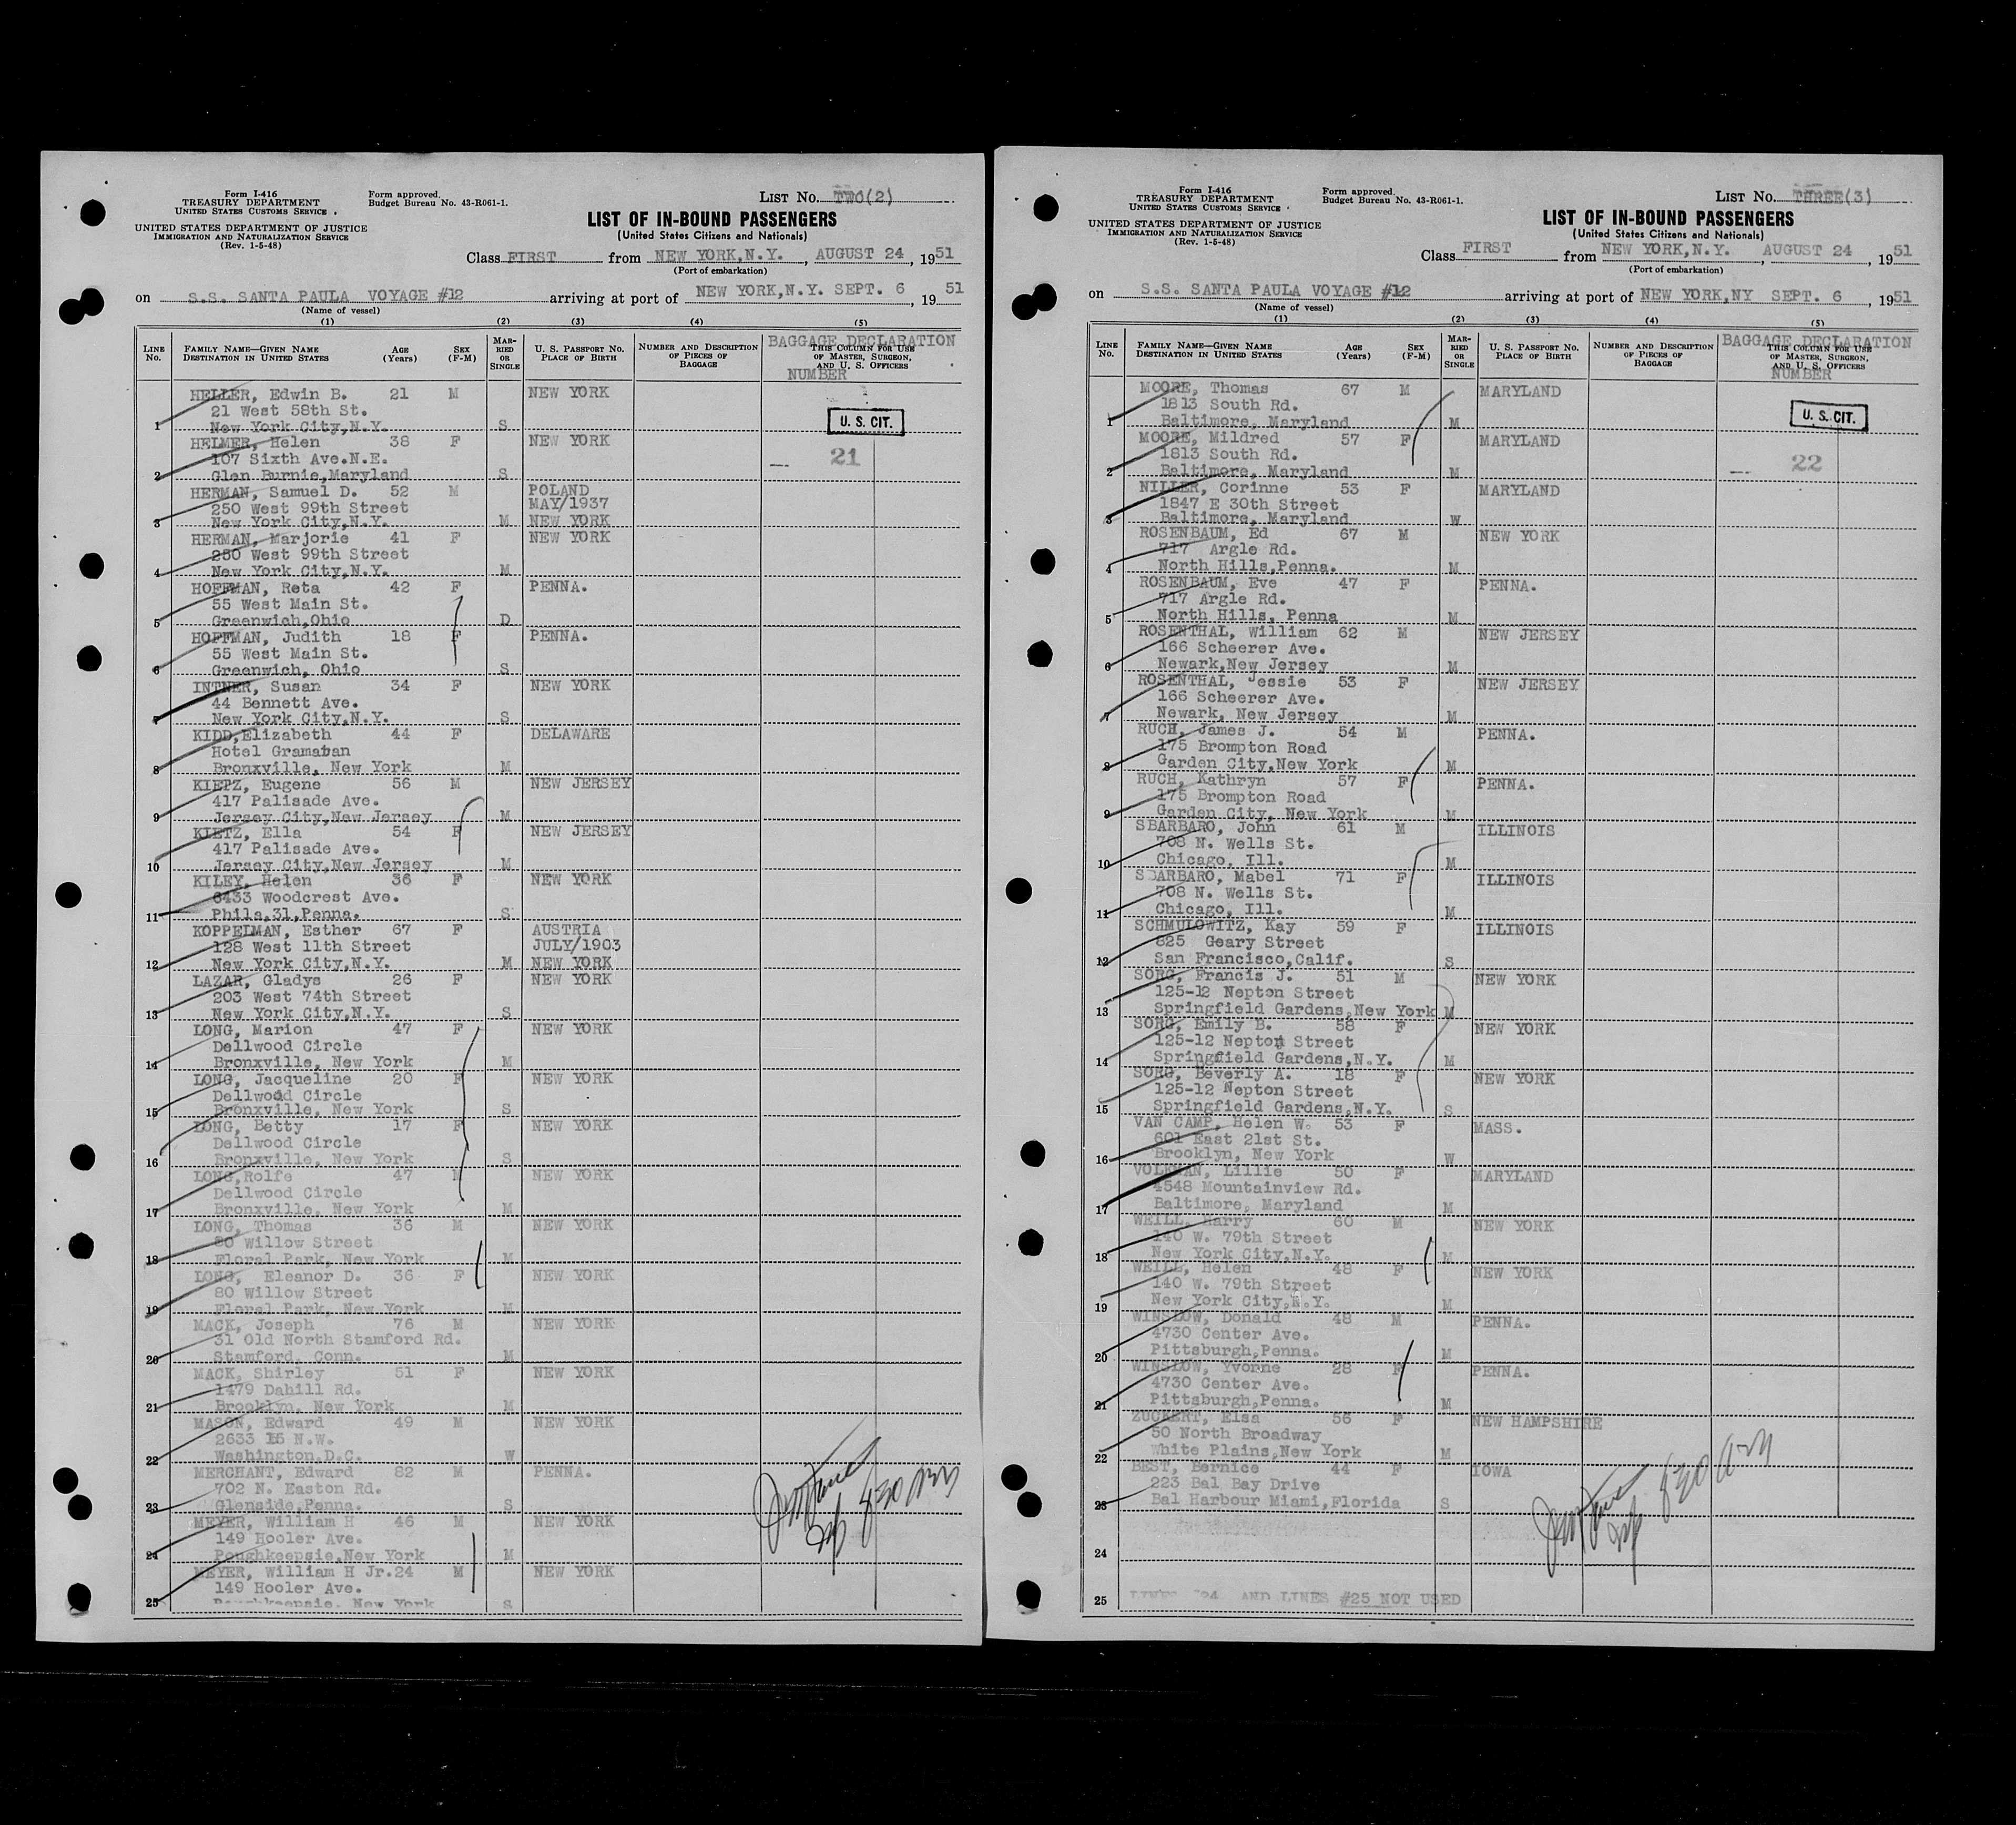 Form I-416
TREASURY DEPARTMENT
UNITED STATES CUSTOMS SERVICE
UNITED STATES DEPARTMENT OF JUSTICE
IMMIGRATION AND NATURALIZATION SERVICE
(Rev. 1-5-48)
Form approved.
Budget Bureau No. 43-R061-1.
LIST No. TWO(2)
LIST OF IN-BOUND PASSENGERS
(United States Citizens and Nationals)
Class FIRST from NEW YORK,N.Y., AUGUST 24, 1951
(Port of embarkation)
on S.S. SANTA PAULA VOYAGE #12 arriving at port of NEW YORK,N.Y. SEPT. 6, 1951
(Name of vessel)
(1) (2) (3) (4) (5)
LINE No. FAMILY NAME—GIVEN NAME DESTINATION IN UNITED STATES AGE (Years) SEX (F-M) MARRIED OR SINGLE U. S. PASSPORT NO. PLACE OF BIRTH NUMBER AND DESCRIPTION OF PIECES OF BAGGAGE THIS COLUMN FOR USE OF MASTER, SURGEON, AND U. S. OFFICERS
BAGGAGE DECLARATION NUMBER
HELLER, Edwin B. 21 M NEW YORK
21 West 58th St.
1 New York City,N.Y. S U. S. CIT.
HELMER, Helen 38 F NEW YORK
107 Sixth Ave.N.E. 21
2 Glen Burnie,Maryland S
HERMAN, Samuel D. 52 M POLAND
250 West 99th Street MAY/1937
3 New York City,N.Y. M NEW YORK
HERMAN, Marjorie 41 F NEW YORK
250 West 99th Street
4 New York City,N.Y. M
HOFFMAN, Reta 42 F PENNA.
55 West Main St.
5 Greenwich,Ohio D
HOFFMAN, Judith 18 F PENNA.
55 West Main St.
6 Greenwich, Ohio S
INTNER, Susan 34 F NEW YORK
44 Bennett Ave.
7 New York City,N.Y. S
KIDD,Elizabeth 44 F DELAWARE
Hotel Gramatan
8 Bronxville, New York M
KIETZ, Eugene 56 M NEW JERSEY
417 Palisade Ave.
9 Jersey City,New Jersey M
KIETZ, Ella 54 F NEW JERSEY
417 Palisade Ave.
10 Jersey City,New Jersey M
KILEY, Helen 36 F NEW YORK
6433 Woodcrest Ave.
11 Phila,31,Penna. S
KOPPELMAN, Esther 67 F AUSTRIA
128 West 11th Street JULY/1903
12 New York City,N.Y. M NEW YORK
LAZAR, Gladys 26 F NEW YORK
203 West 74th Street
13 New York City,N.Y. S
LONG, Marion 47 F NEW YORK
Dellwood Circle
14 Bronxville, New York M
LONG, Jacqueline 20 F NEW YORK
Dellwood Circle
15 Bronxville, New York S
LONG, Betty 17 F NEW YORK
Dellwood Circle
16 Bronxville, New York S
LONG,Rolfe 47 M NEW YORK
Dellwood Circle
17 Bronxville, New York M
LONG, Thomas 36 M NEW YORK
80 Willow Street
18 Floral Park, New York M
LONG, Eleanor D. 36 F NEW YORK
80 Willow Street
19 Floral Park, New York M
MACK, Joseph 76 M NEW YORK
31 Old North Stamford Rd.
20 Stamford, Conn. M
MACK, Shirley 51 F NEW YORK
1479 Dahill Rd.
21 Brooklyn, New York M
MASON, Edward 49 M NEW YORK
2633 16 N.W.
22 Washington,D.C. W
MERCHANT, Edward 82 M PENNA.
702 N. Easton Rd.
23 Glenside,Penna. S
MEYER, William H 46 M NEW YORK
149 Hooler Ave.
24 Poughkeepsie,New York M
MEYER, William H Jr.24 M NEW YORK
149 Hooler Ave.
25 Poughkeepsie, New York S
Form I-416
TREASURY DEPARTMENT
UNITED STATES CUSTOMS SERVICE
UNITED STATES DEPARTMENT OF JUSTICE
IMMIGRATION AND NATURALIZATION SERVICE
(Rev. 1-5-48)
Form approved.
Budget Bureau No. 43-R061-1.
LIST No. THREE(3)
LIST OF IN-BOUND PASSENGERS
(United States Citizens and Nationals)
Class FIRST from NEW YORK,N.Y., AUGUST 24, 1951
(Port of embarkation)
on S.S. SANTA PAULA VOYAGE #12 arriving at port of NEW YORK,NY SEPT. 6, 1951
(Name of vessel)
(1) (2) (3) (4) (5)
LINE No. FAMILY NAME—GIVEN NAME DESTINATION IN UNITED STATES AGE (Years) SEX (F-M) MARRIED OR SINGLE U. S. PASSPORT NO. PLACE OF BIRTH NUMBER AND DESCRIPTION OF PIECES OF BAGGAGE THIS COLUMN FOR USE OF MASTER, SURGEON, AND U. S. OFFICERS
BAGGAGE DECLARATION NUMBER
MOORE, Thomas 67 M MARYLAND
1813 South Rd.
1 Baltimore, Maryland M U. S. CIT.
MOORE, Mildred 57 F MARYLAND
1813 South Rd. 22
2 Baltimore, Maryland M
NILLER, Corinne 53 F MARYLAND
1847 E 30th Street
3 Baltimore, Maryland W
ROSENBAUM, Ed 67 M NEW YORK
717 Argle Rd.
4 North Hills,Penna. M
ROSENBAUM, Eve 47 F PENNA.
717 Argle Rd.
5 North Hills, Penna M
ROSENTHAL, William 62 M NEW JERSEY
166 Scheerer Ave.
6 Newark,New Jersey M
ROSENTHAL, Jessie 53 F NEW JERSEY
166 Scheerer Ave.
7 Newark, New Jersey M
RUCH, James J. 54 M PENNA.
175 Brompton Road
8 Garden City,New York M
RUCH, Kathryn 57 F PENNA.
175 Brompton Road
9 Garden City, New York M
SBARBARO, John 61 M ILLINOIS
708 N. Wells St.
10 Chicago, Ill. M
SBARBARO, Mabel 71 F ILLINOIS
708 N. Wells St.
11 Chicago, Ill. M
SCHMULOWITZ, Kay 59 F ILLINOIS
825 Geary Street
12 San Francisco,Calif. S
SORG, Francis J. 51 M NEW YORK
125-12 Nepton Street
13 Springfield Gardens,New York M
SORG, Emily B. 58 F NEW YORK
125-12 Nepton Street
14 Springfield Gardens,N.Y. M
SORG, Beverly A. 18 F NEW YORK
125-12 Nepton Street
15 Springfield Gardens,N.Y. S
VAN CAMP, Helen W. 53 F MASS.
601 East 21st St.
16 Brooklyn, New York W
VOLKMAN, Lillie 50 F MARYLAND
4548 Mountainview Rd.
17 Baltimore, Maryland M
WEILL, Harry 60 M NEW YORK
140 W. 79th Street
18 New York City,N.Y. M
WEILL, Helen 48 F NEW YORK
140 W. 79th Street
19 New York City,N.Y. M
WINSLOW, Donald 48 M PENNA.
4730 Center Ave.
20 Pittsburgh,Penna. M
WINSLOW, Yvonne 28 F PENNA.
4730 Center Ave.
21 Pittsburgh,Penna. M
ZUCKERT, Elsa 56 F NEW HAMPSHIRE
50 North Broadway
22 White Plains,New York M
BEST, Bernice 44 F IOWA
223 Bal Bay Drive
23 Bal Harbour Miami,Florida S
24
25 LINES #24 AND LINES #25 NOT USED